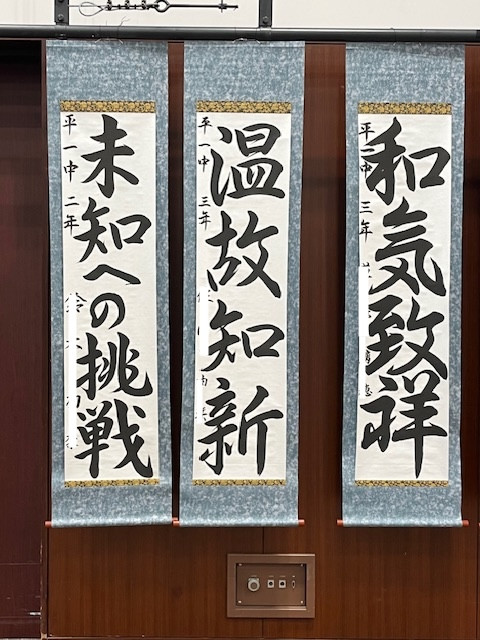 和気致祥
平一中 三年
温故知新
平一中 三年
未知への挑戦
平一中 二年